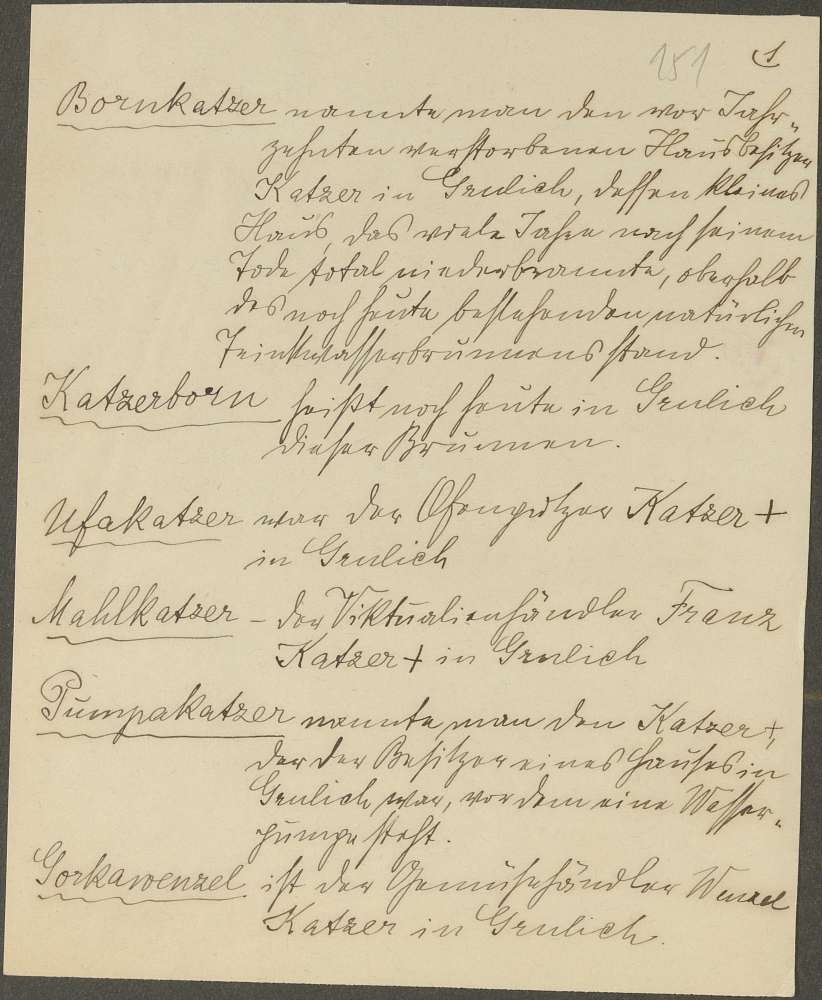 151 1
Bornkatzer nannte man den vor Jahr-
zehnten verstorbenen Hausbesitzer
Katzer in Grulich, dessen kleines
Haus, das viele Jahre nach seinem
Tode total niederbrannte, oberhalb
des noch heute bestehenden natürlichen
Trinkwasserbrunnens stand.
Katzerborn heißt noch heute in Grulich
dieser Brunnen.
Ufakatzer war der Ofenputzer Katzer +
in Grulich
Mahlkatzer - der Viktualienhändler Franz
Katzer + in Grulich
Pumpakatzer nannte man den Katzer +,
der der Besitzer eines Hauses in
Grulich war, vor dem eine Wasser-
pumpe steht.
Gorkawenzel ist der Gemüsehändler Wenzel
Katzer in Grulich.